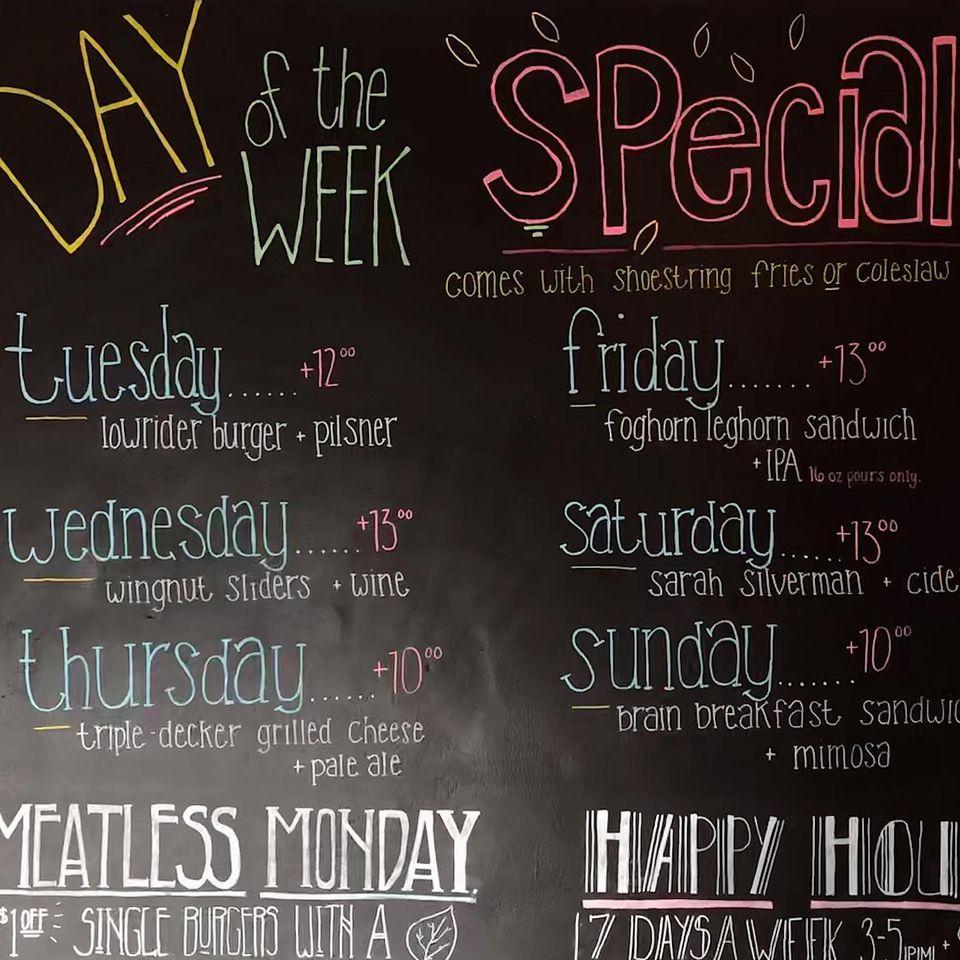 DAY of the WEEK Special
comes with shoestring fries or coleslaw
tuesday......+12⁰⁰
lowrider burger + pilsner
wednesday......+13⁰⁰
wingnut sliders + wine
thursday......+10⁰⁰
triple-decker grilled cheese
+ pale ale
friday.......+13⁰⁰
foghorn leghorn sandwich
+ IPA 16 oz pours only.
saturday.....+13⁰⁰
sarah silverman + cide
sunday.......+10⁰⁰
brain breakfast sandwic
+ mimosa
MEATLESS MONDAY.
$1 OFF SINGLE BURGERS WITH A
HAPPY HOU
7 DAYS A WEEK 3-5(PM) +